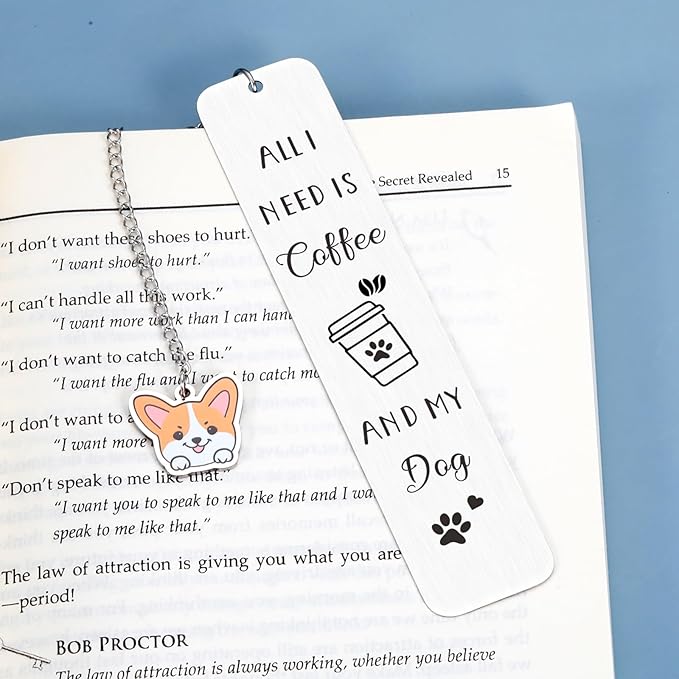 Secret Revealed 15
"I don't want these shoes to hurt.
"I want shoes to hurt."
"I can't handle all this work."
"I want more work than I can
"I don't want to catch the flu."
"I want the flu and I want to catch
"I don't want to
"I want more
"Don't speak to me like that."
"I want you to speak to me like that and I
speak to me like that."
The law of attraction is giving you what you are
—period!
BOB PROCTOR
The law of attraction is always working, whether you believe
ALL I
NEED IS
Coffee
AND MY
Dog